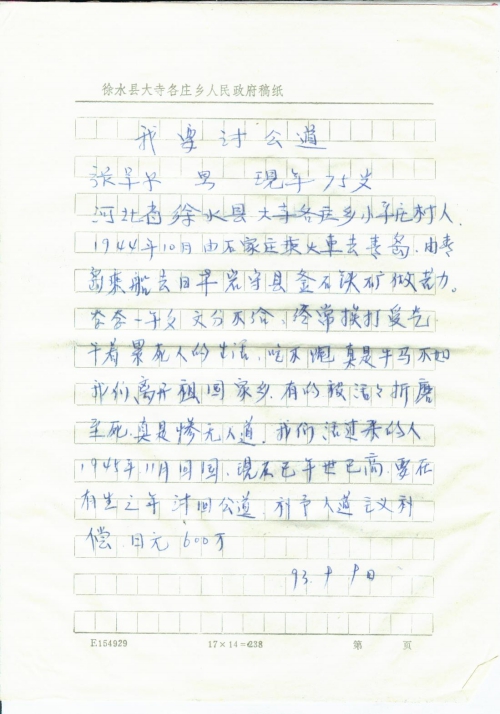 徐水县大寺各庄乡人民政府稿纸
我要讨公道
张 男 现年75岁
河北省徐水县大寺各庄乡小 庄村人
1944年10月由石家庄乘火車去青島.由青
島乘船去日 岩守县釜石铁矿做苦力。
整整一年多文分不给、经常挨打受气
干着累死人的生活、吃不饱真是牛马不如
我们离开祖国家乡.有的被活々折磨
至死.真是惨无人道.我们活过来的人
1945年11月回国.现在已年世已高.要在
有生之年讨回公道.利于人道主义 
偿 日元600万
93. 9 9日
E154929 17×14=238 第 页